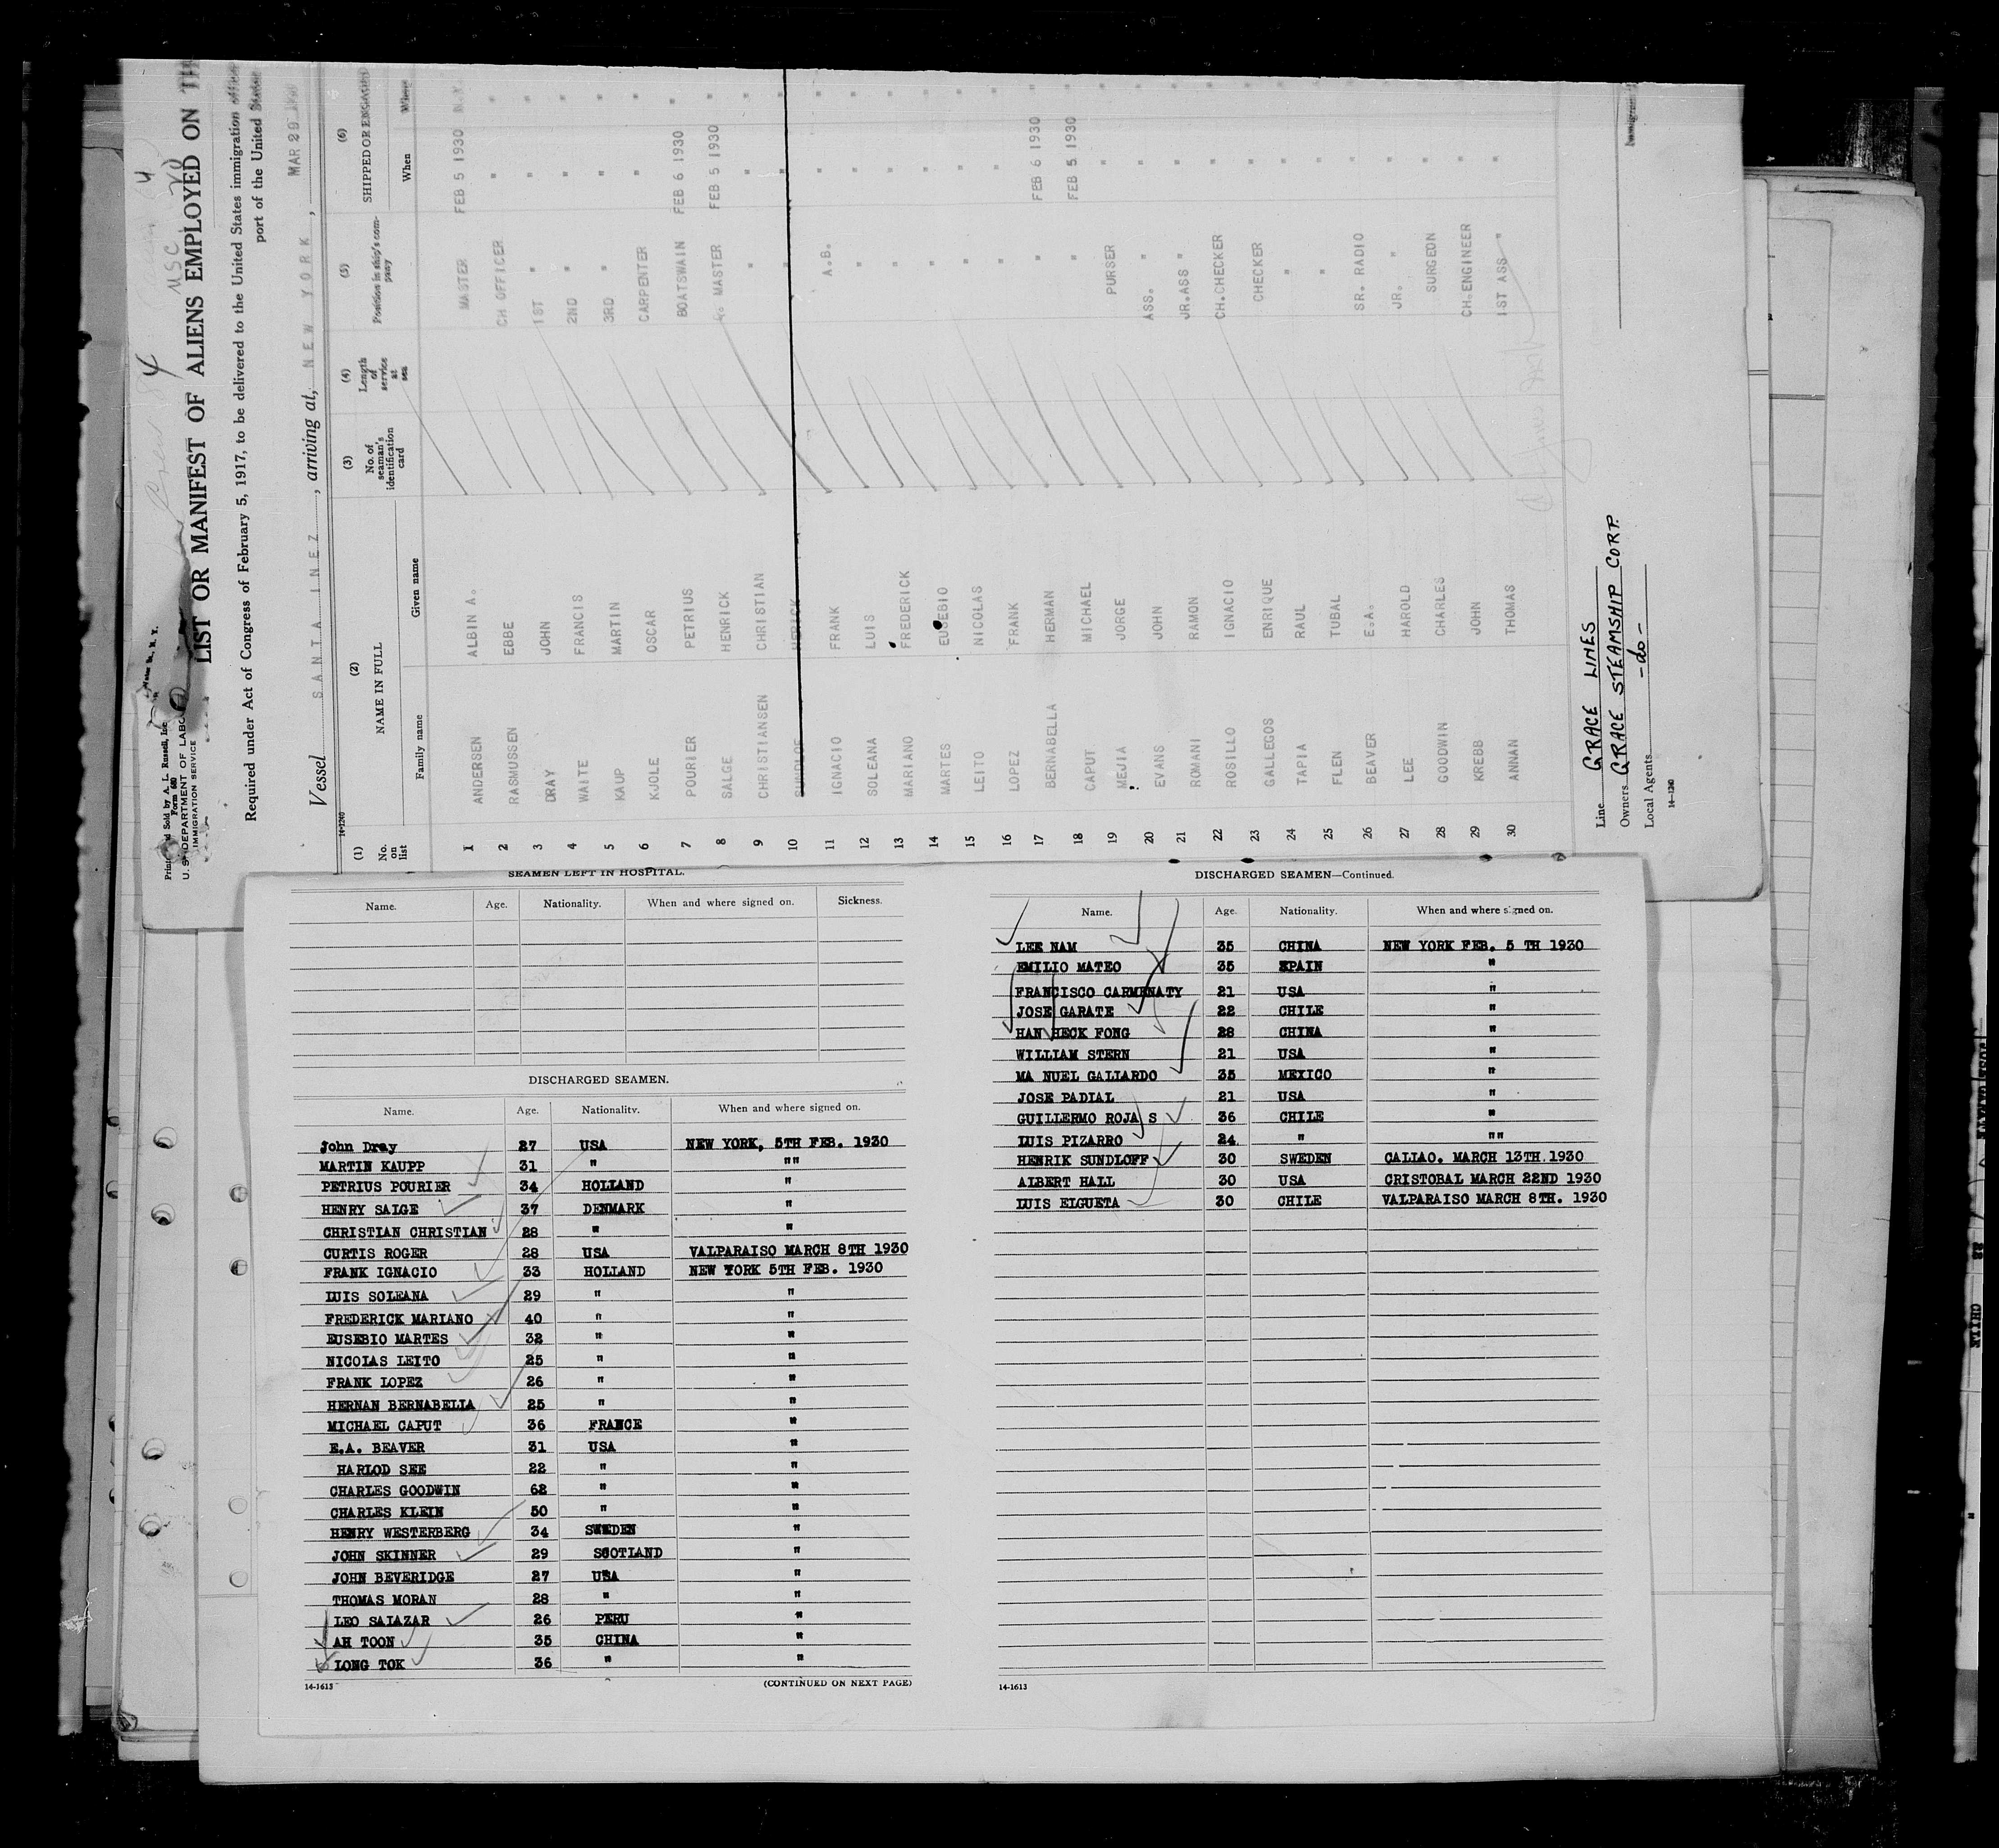 Form 680
U. S. DEPARTMENT OF LABOR
IMMIGRATION SERVICE
LIST OR MANIFEST OF ALIENS EMPLOYED ON
Required under Act of Congress of February 5, 1917, to be delivered to the United States immigration
port of the United
Vessel SANTA INEZ, arriving at, NEW YORK, MAR 29
14-1240
(1) (2) (3) (4) (5) (6)
No. on list NAME IN FULL No. of seaman's identification card Length of service at sea Position in ship's company SHIPPED OR ENGAGED
Family name Given name When Where
1 ANDERSEN ALBIN A. MASTER FEB 5 1930 N.Y.
2 RASMUSSEN EBBE CH OFFICER " "
3 DRAY JOHN 1ST " " "
4 WAITE FRANCIS 2ND " " "
5 KAUP MARTIN 3RD " " "
6 KJOLE OSCAR CARPENTER " "
7 POURIER PETRIUS BOATSWAIN FEB 6 1930 "
8 SALGE HENRICK Q. MASTER FEB 5 1930 "
9 CHRISTIANSEN CHRISTIAN " " "
10 " " "
11 IGNACIO FRANK A.B. " "
12 SOLEANA LUIS " " "
13 MARIANO FREDERICK " " "
14 MARTES EUSEBIO " " "
15 LEITO NICOLAS " " "
16 LOPEZ FRANK " " "
17 BERNABELLA HERMAN " FEB 6 1930 "
18 CAPUT MICHAEL " FEB 5 1930 "
19 MEJIA JORGE PURSER " "
20 EVANS JOHN ASS. " " "
21 ROMANI RAMON JR.ASS " " "
22 ROSILLO IGNACIO CH.CHECKER " "
23 GALLEGOS ENRIQUE CHECKER " "
24 TAPIA RAUL " " "
25 FLEN TUBAL " " "
26 BEAVER E.A. SR. RADIO " "
27 LEE HAROLD JR. " " "
28 GOODWIN CHARLES SURGEON " "
29 KREBB JOHN CH.ENGINEER " "
30 ANNAN THOMAS 1ST ASS " " "
Line GRACE LINES
Owners GRACE STEAMSHIP CORP.
Local Agents -do-
14-1240
SEAMEN LEFT IN HOSPITAL.
Name. Age. Nationality. When and where signed on. Sickness.
DISCHARGED SEAMEN.
Name. Age. Nationality. When and where signed on.
John Dray 27 USA NEW YORK, 5TH FEB. 1930
MARTIN KAUPP 31 " ""
PETRIUS POURIER 34 HOLLAND "
HENRY SALGE 37 DENMARK "
CHRISTIAN CHRISTIAN 28 " "
CURTIS ROGER 28 USA VALPARAISO MARCH 8TH 1930
FRANK IGNACIO 33 HOLLAND NEW YORK 5TH FEB. 1930
LUIS SOLEANA 29 " "
FREDERICK MARIANO 40 " "
EUSEBIO MARTES 32 " "
NICOLAS LEITO 25 " "
FRANK LOPEZ 26 " "
HERNAN BERNABELLA 25 " "
MICHAEL CAPUT 36 FRANCE "
E.A. BEAVER 31 USA "
HARLOD SEE 22 " "
CHARLES GOODWIN 62 " "
CHARLES KLEIN 50 " "
HENRY WESTERBERG 34 SWEDEN "
JOHN SKINNER 29 SCOTLAND "
JOHN BEVERIDGE 27 USA "
THOMAS MORAN 28 " "
LEO SALAZAR 26 PERU "
AH TOON 35 CHINA "
LONG TOK 36 " "
14-1613
(CONTINUED ON NEXT PAGE)
DISCHARGED SEAMEN—Continued.
Name. Age. Nationality. When and where signed on.
LEE NAM 35 CHINA NEW YORK FEB. 5 TH 1930
EMILIO MATEO 35 SPAIN "
FRANCISCO CARMENATY 21 USA "
JOSE GARATE 22 CHILE "
HAN HECK FONG 28 CHINA "
WILLIAM STERN 21 USA "
MA NUEL GALLARDO 35 MEXICO "
JOSE PADIAL 21 USA "
GUILLERMO ROJA S 36 CHILE "
LUIS PIZARRO 24 " ""
HENRIK SUNDLOFF 30 SWEDEN CALLAO. MARCH 13TH.1930
ALBERT HALL 30 USA CRISTOBAL MARCH 22ND 1930
LUIS ELGUETA 30 CHILE VALPARAISO MARCH 8TH. 1930
14-1613